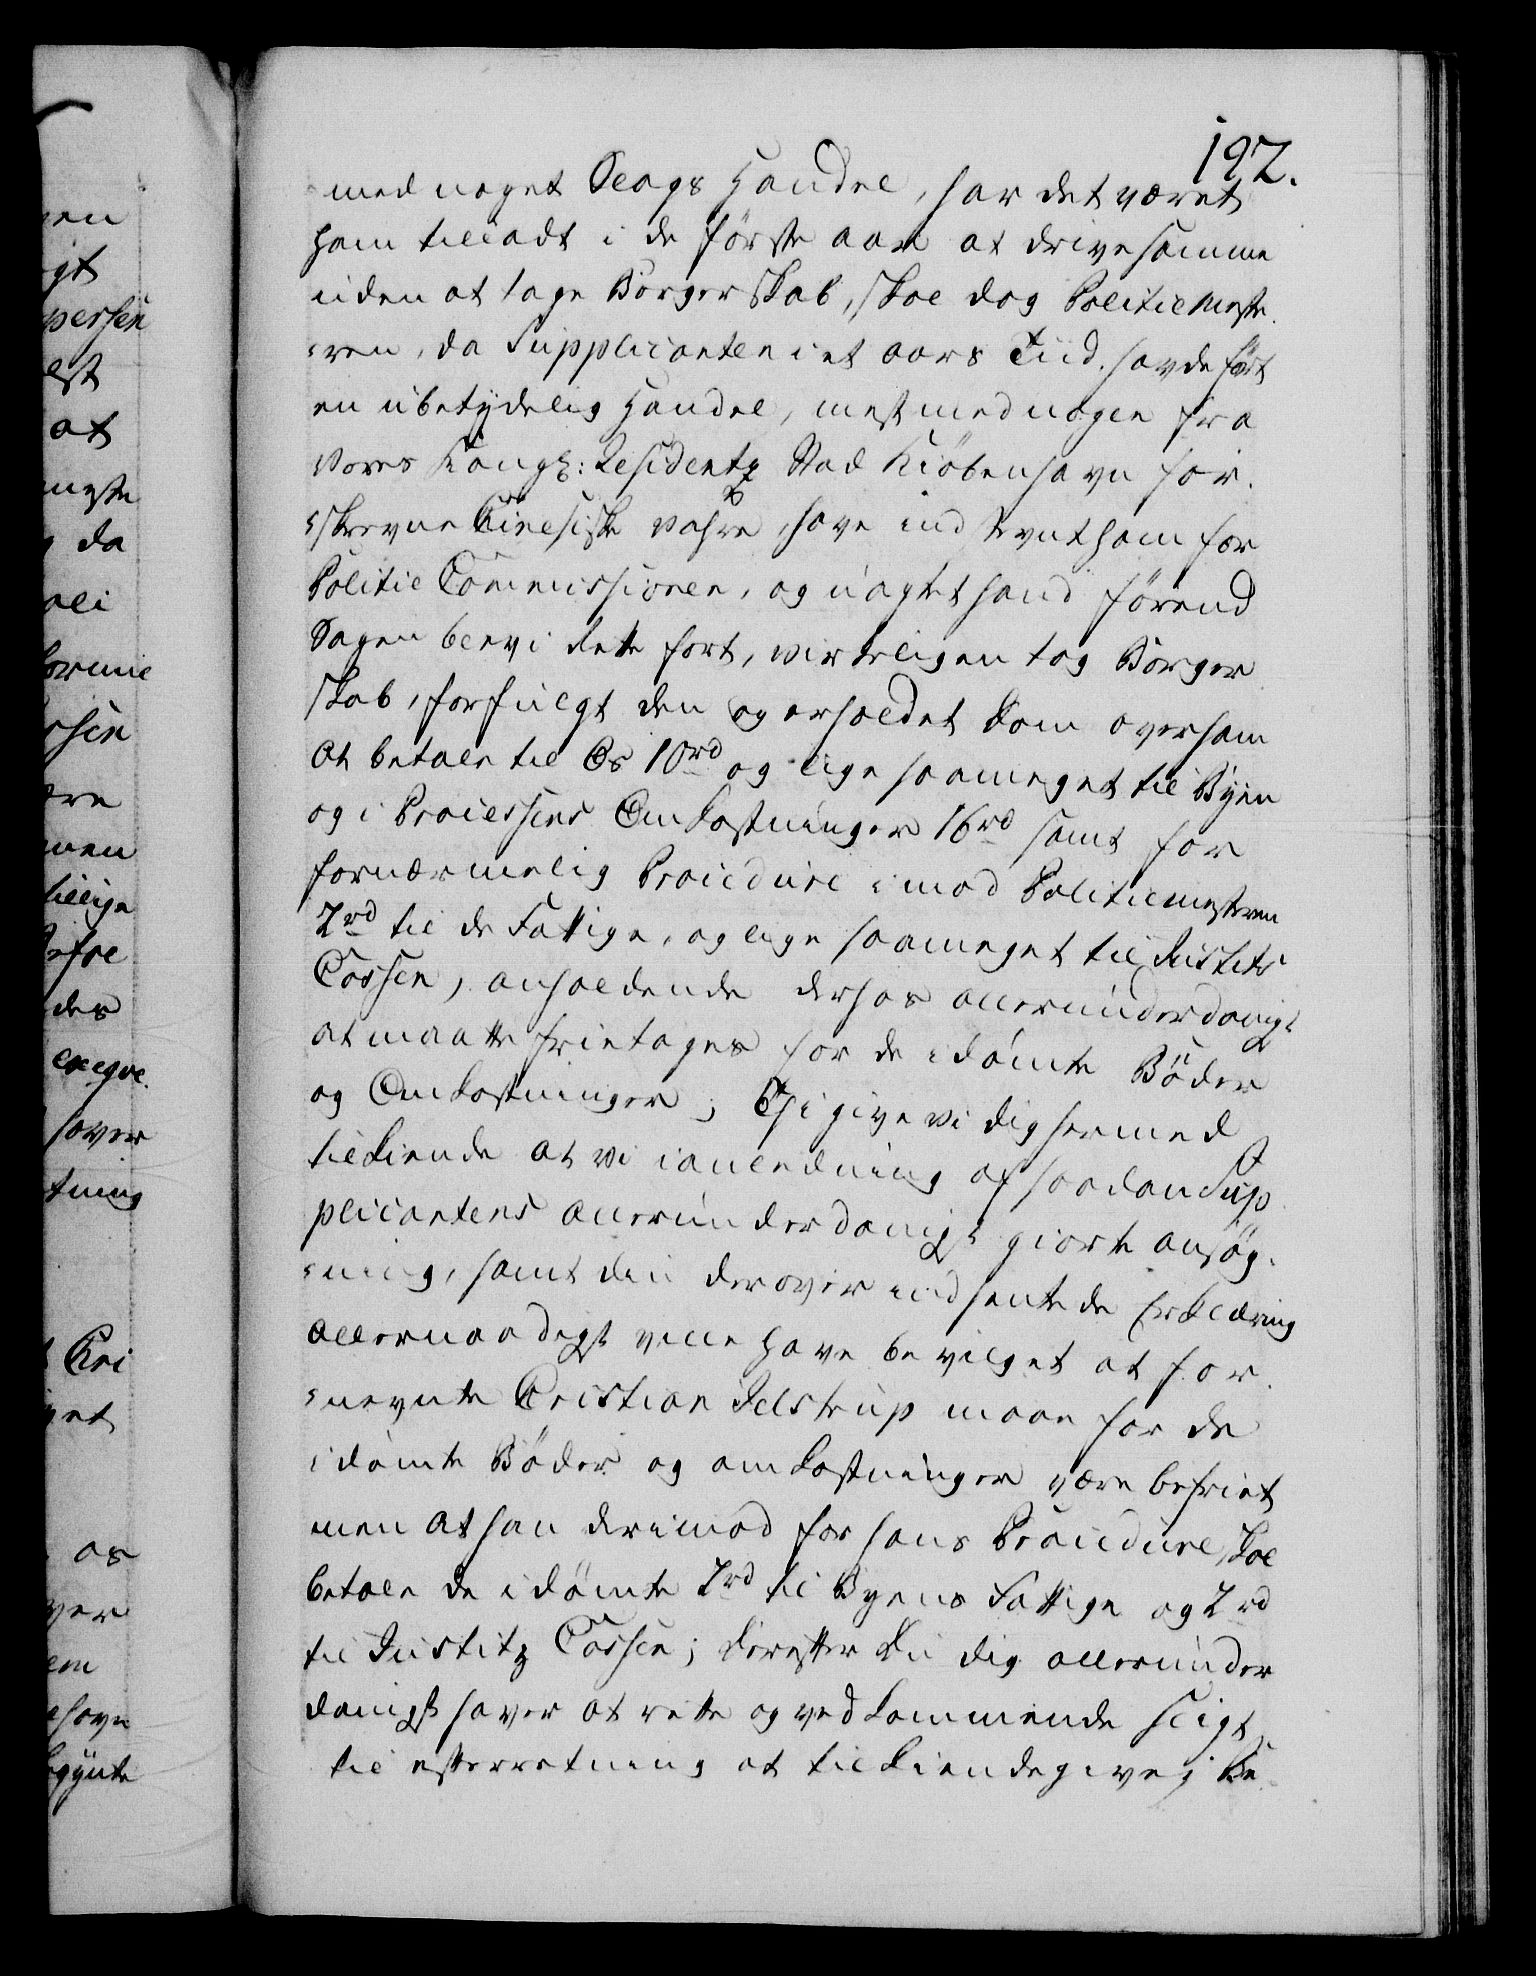 192.
med noget Slags Handel, har det været
ham tilladt i de förste aar at drive samme
uden at tage Borgerskab, skal dog Politiemeste-
-ren, da Supplicanten i et aars Tiid havde fört
en ubetydelig Handel, mest med nogle fra
Vores Kongl: Residentz Stad Kiöbenhavn for-
-skrevne Chinesiske Vahre, have indstevnt ham for
Politie Commissionen, og uagtet hand förend
Sagen blev i Rette fört, virkeligen tog Borger
skab, forfulgt den og erholdet Dom over ham
at betale til Os 10rd og lige saameget til Byen
og i Processens Omkostninger 16rd samt for
fornærmelig Procedure imod Politiemesteren
2rd til de Fattige, og lige saameget til Justits
Cassen, anholdende derhos allerunderdanigst
at maatte fritages for de idömte Böder
og Omkostninger; Thi give vi dig hermed
tilkiende at vi i anledning af saadan Sup
plicantens allerunderdanigst giorte ansög-
-ning, samt din derover indsendte Erklæring
allernaadigst ville have bevilget at for-
-nevnte Christian Jelstrup maae for de
idömte Böder og omkostninger være befriet
men at han derimod for hans Procedure skal
betale de idömte 2rd til Byens Fattige og 2rd
til Justitz Cassen; Derefter Du dig allerunder
danigst haver at rette og vedkommende sligt
til efterretning at tilkiendegive; Be-